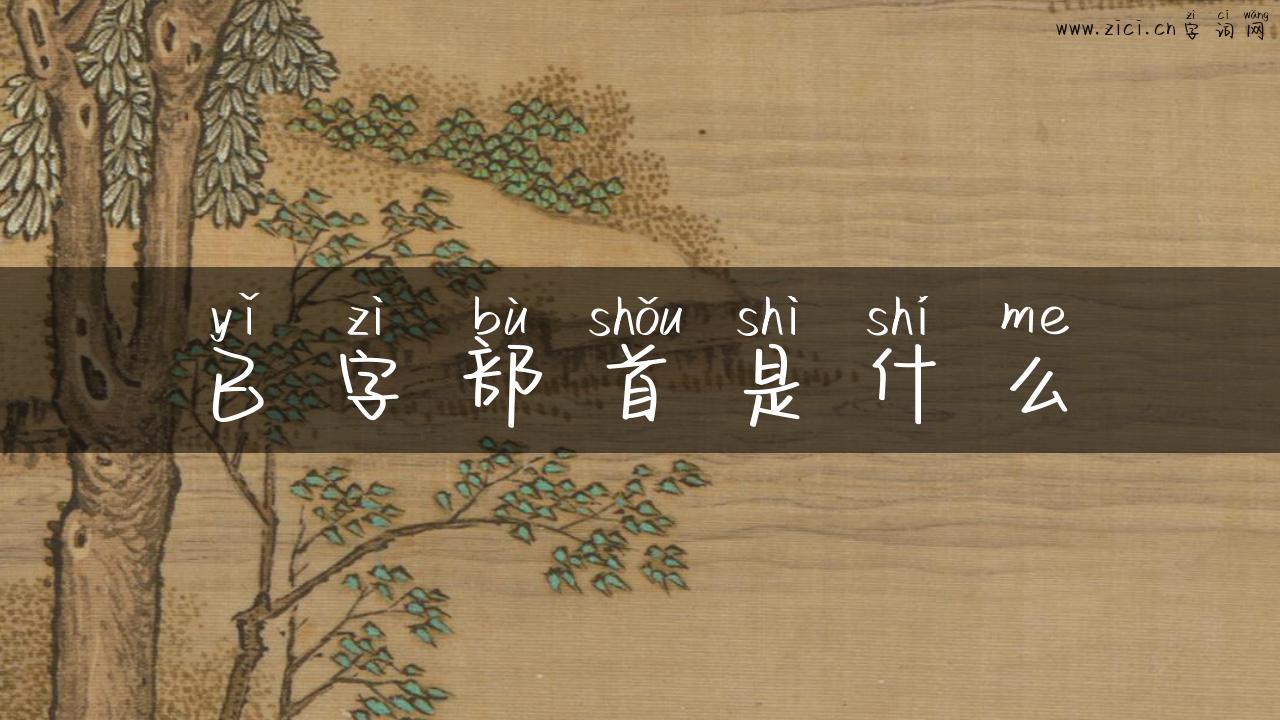 zì cí wǎng
www.zici.cn 字词网
yǐ zì bù shǒu shì shí me
已字部首是什么